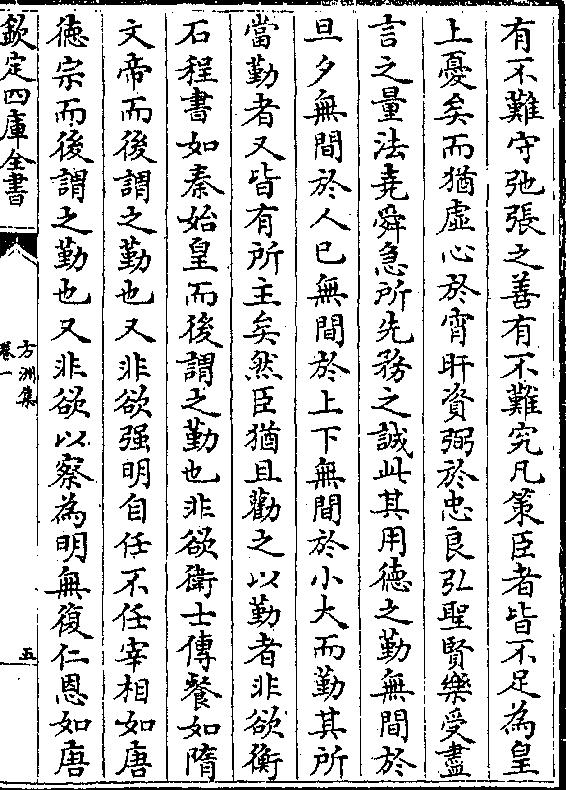 有不難守弛張之善有不難究凡策臣者皆不足為皇
上憂矣而猶虛心於宵旰資弼於忠良弘聖賢樂受盡
言之量法堯舜急所先務之誠此其用德之勤無間於
旦夕無間於人已無間於上下無間於小大而勤其所
當勤者又皆有所主矣然臣猶且勸之以勤者非欲衡
石程書如秦始皇而後謂之勤也非欲衛士傳餐如隋
文帝而後謂之勤也又非欲强明自任不任宰相如唐
德宗而後謂之勤也又非欲以察為明無復仁恩如唐
欽定四庫全書
方洲集
卷一
五